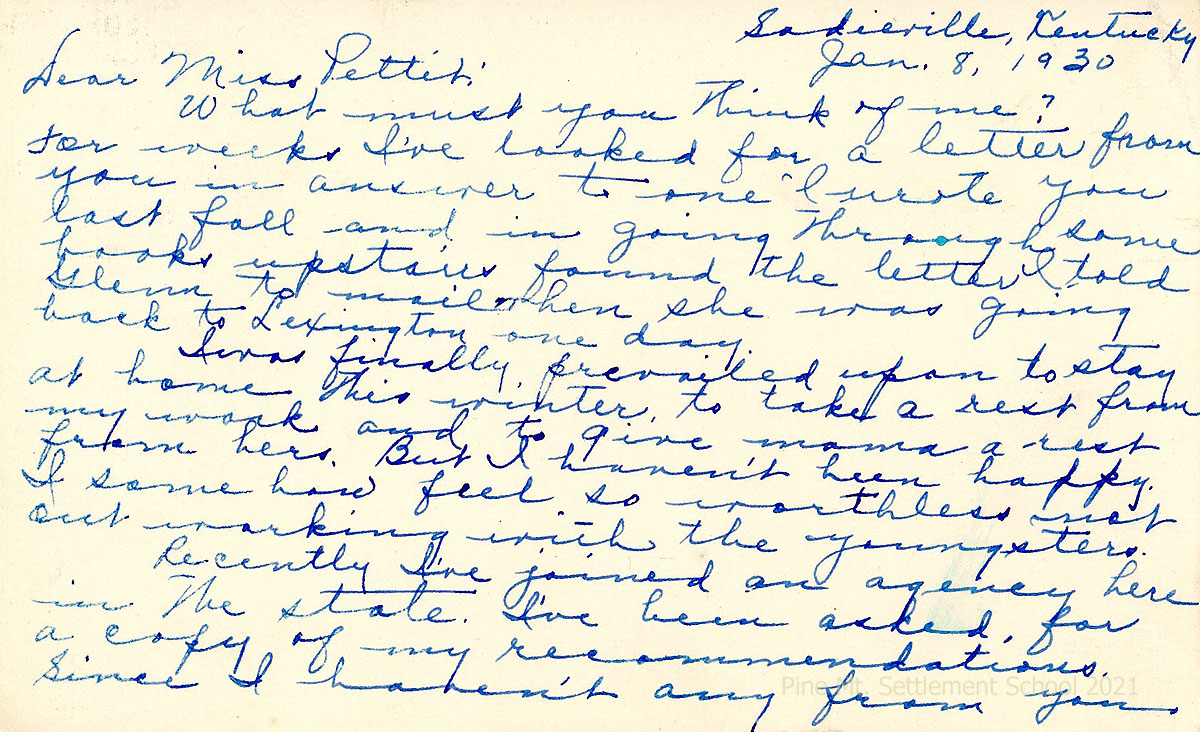 Sadieville, Kentucky
Jan. 8, 1930
Dear Miss Pettit:
What must you think of me?
For weeks I've looked for a letter from
you in answer to one I wrote you
last fall and in going through some
books upstairs found the letter I told
Glenn to mail when she was going
back to Lexington one day.
I was finally prevailed upon to stay
at home this winter, to take a rest from
my work and to give mama a rest
from hers. But I haven't been happy.
I some how feel so worthless not
out working with the youngsters.
Recently I've joined an agency here
in the state. I've been asked, for
a copy of my recommendations.
Since I haven't any from you,
Pine Mt. Settlement School 2021